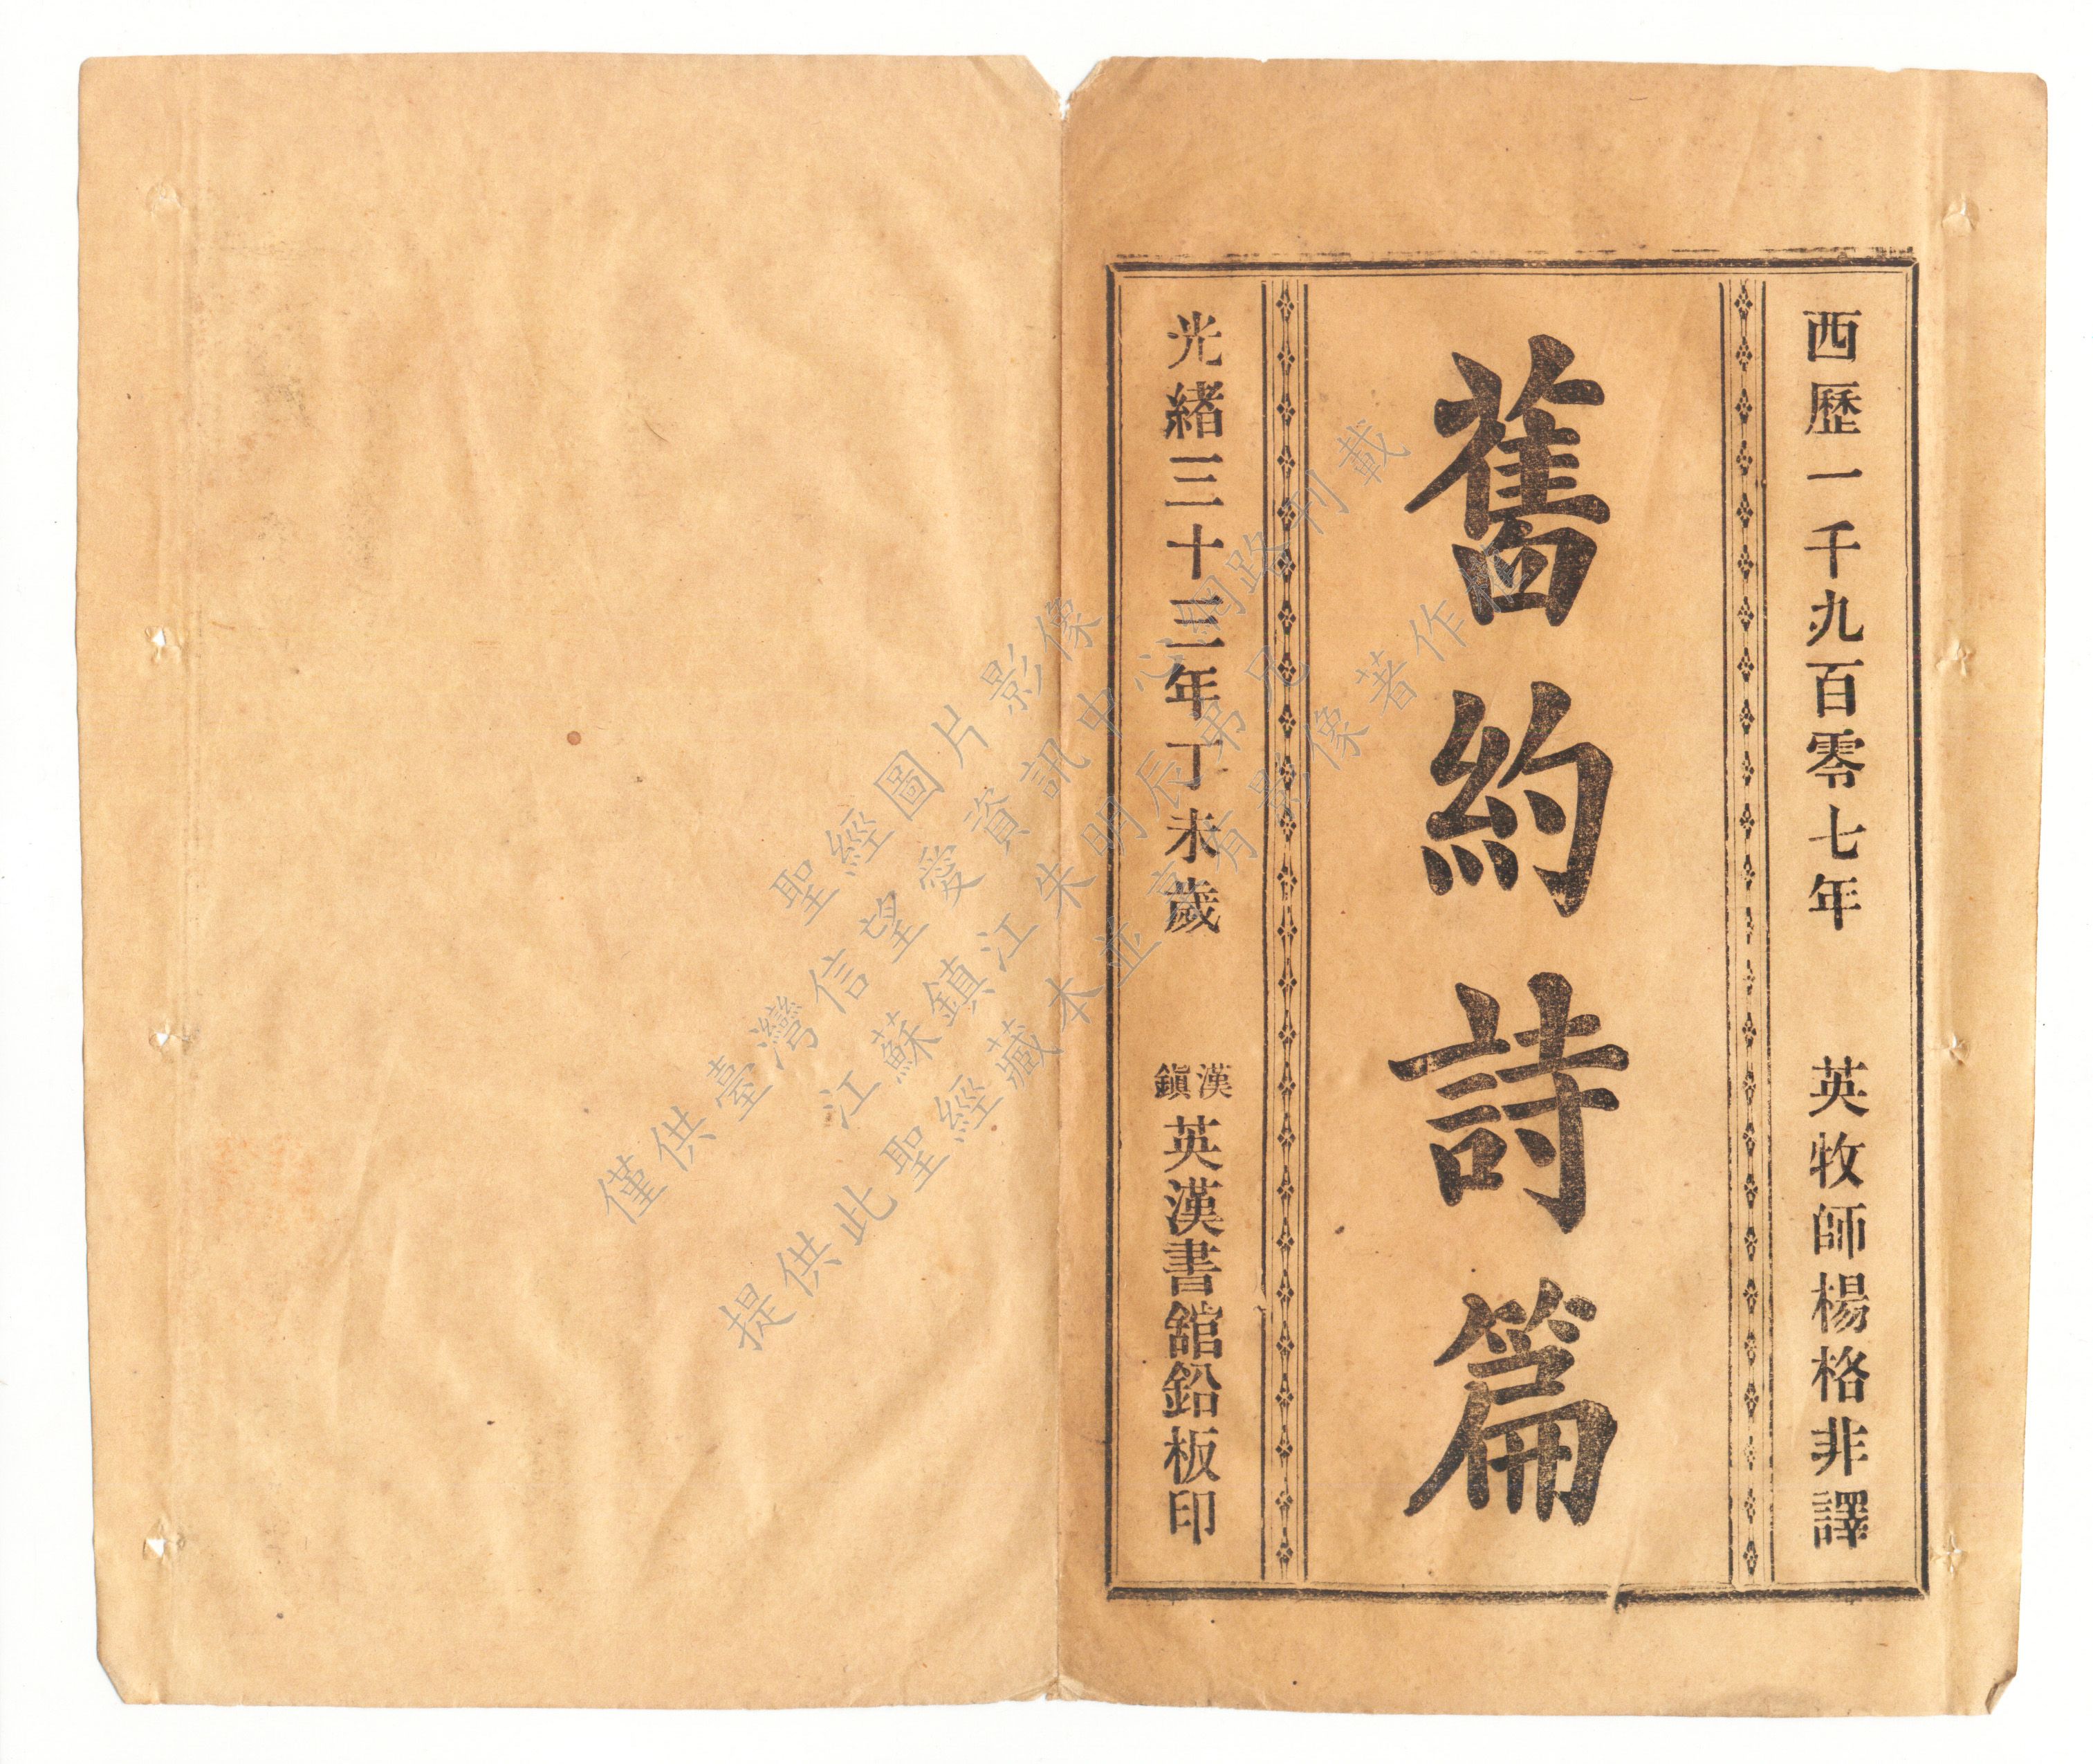 西歷一千九百零七年 英牧師楊格非譯
舊約詩篇
光緒三十三年丁未歲 漢鎭英漢書舘鉛板印
聖經圖片影像
僅供臺灣信望愛資訊中心網路刊載
江蘇鎮江朱明辰弟兄
提供此聖經藏本並享有影像著作權